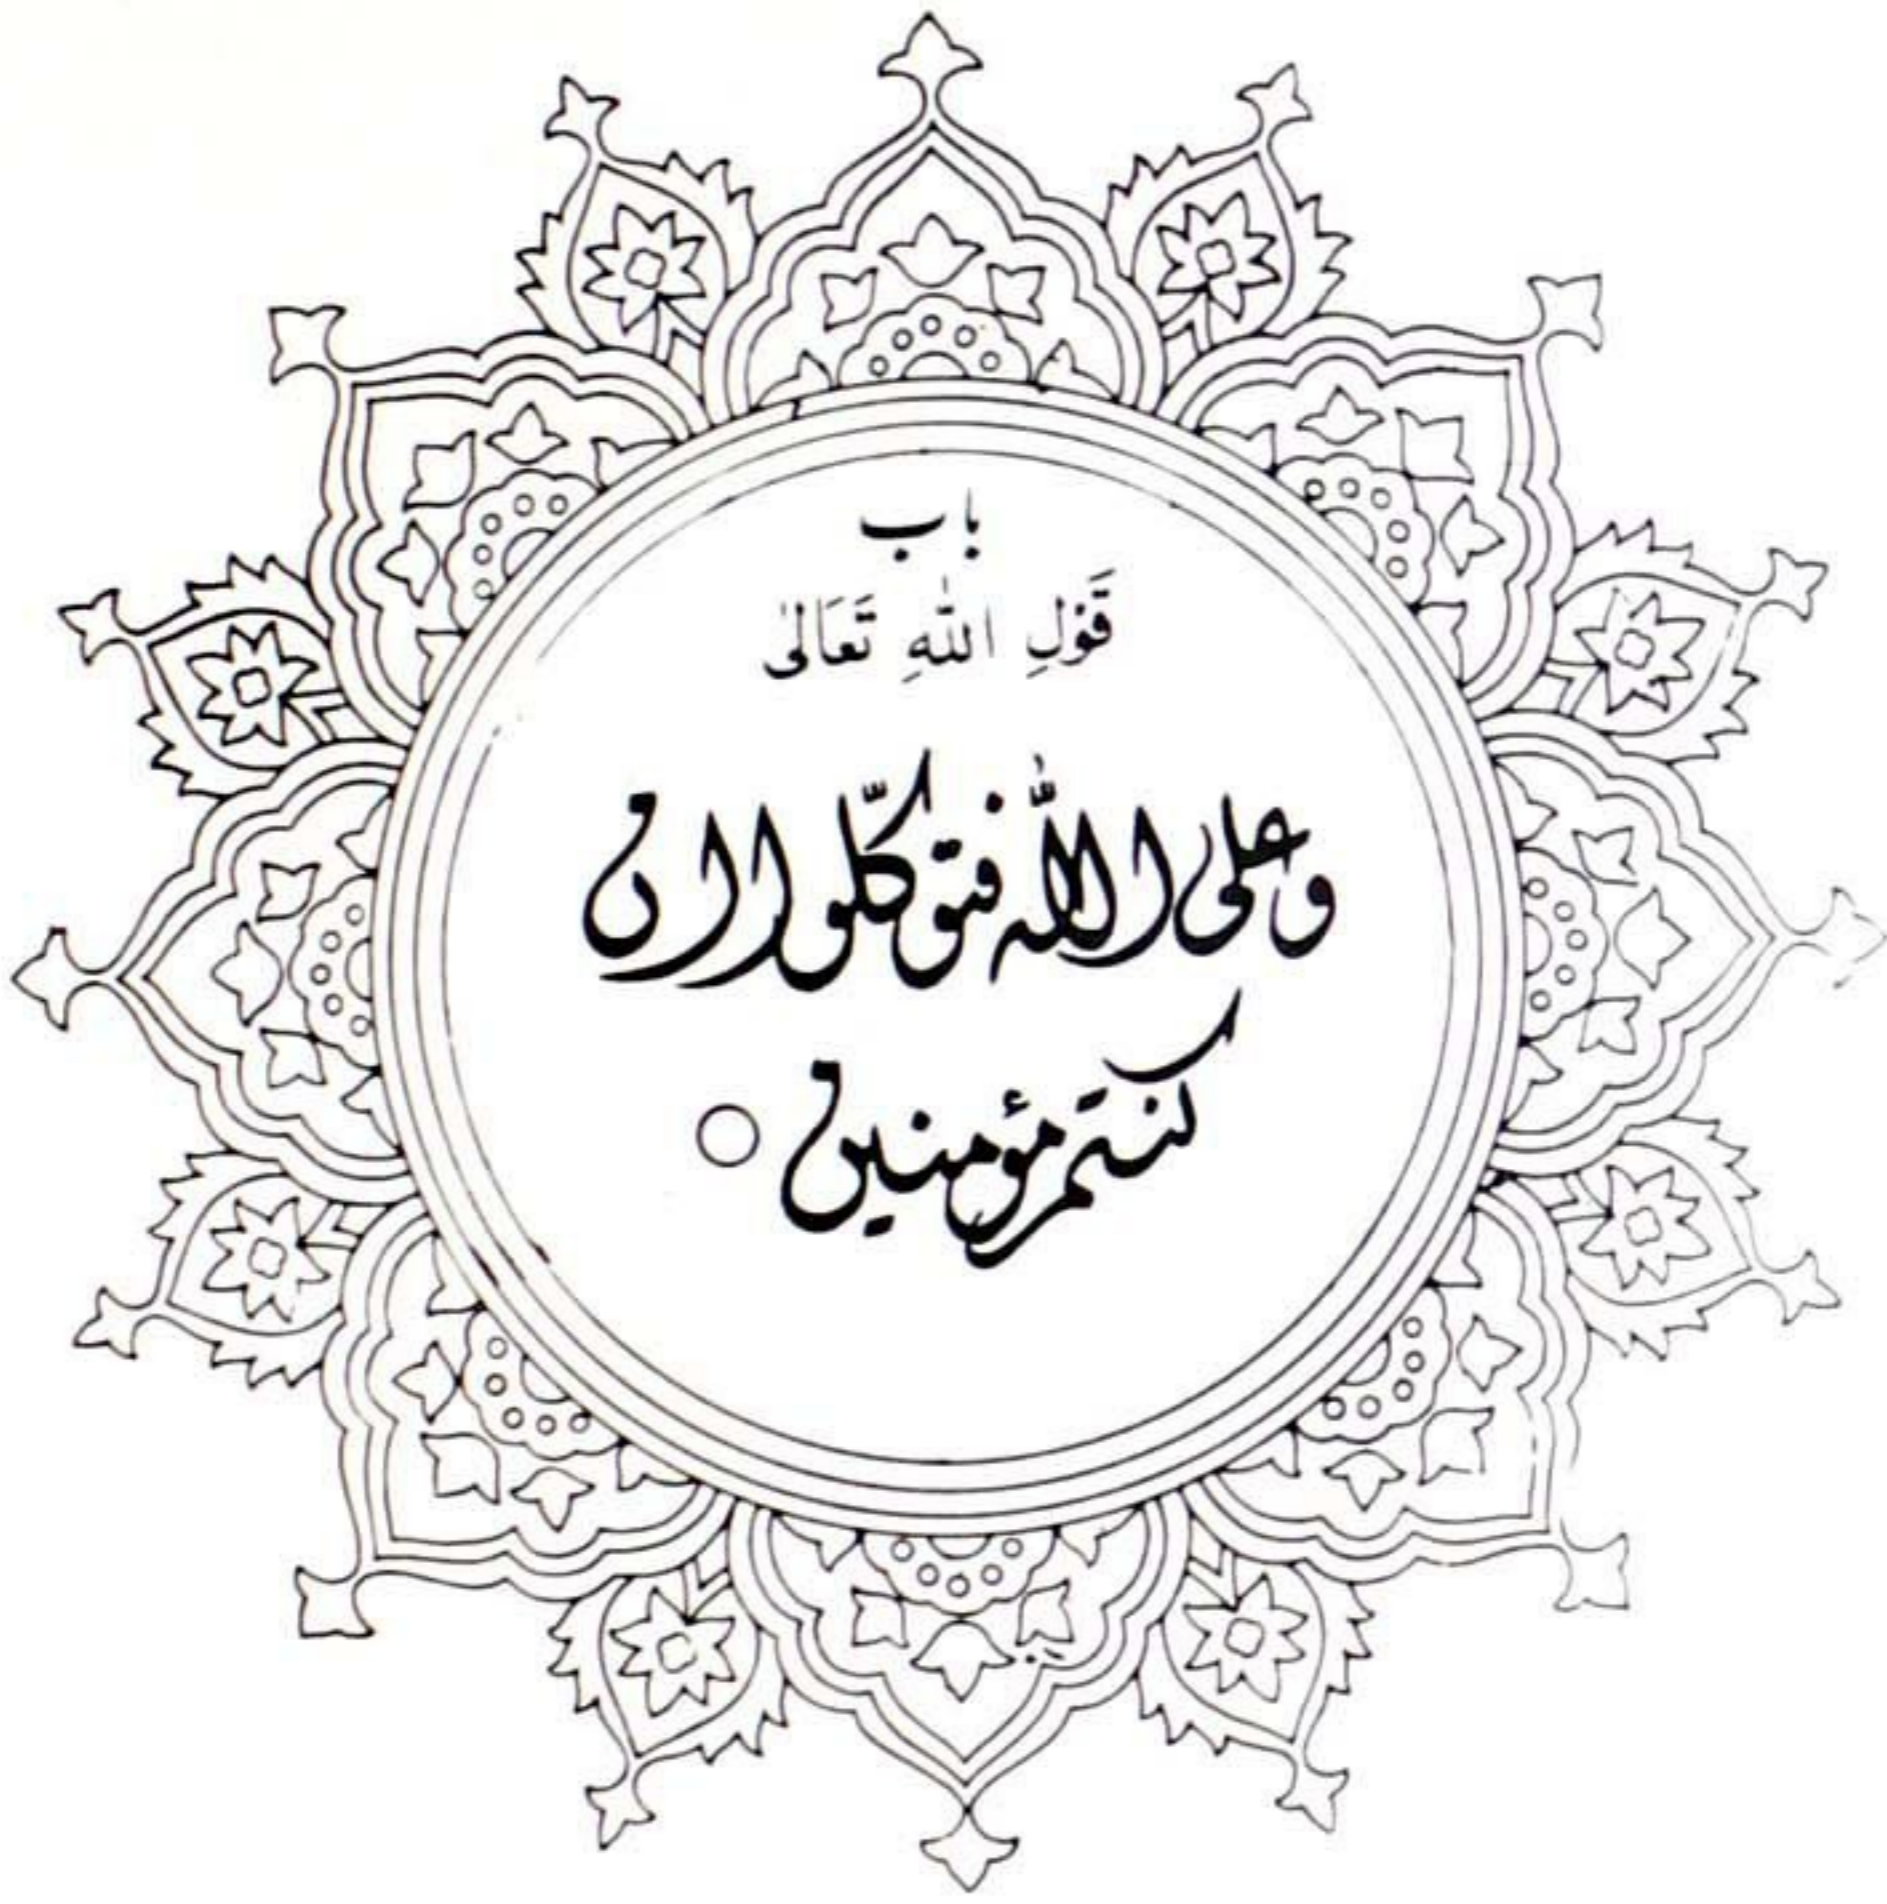 باب
قَوْلِ اللّٰهِ تَعَالىٰ
وعلى اللّٰه فتوكّلوا ان
كنتم مؤمنين ○